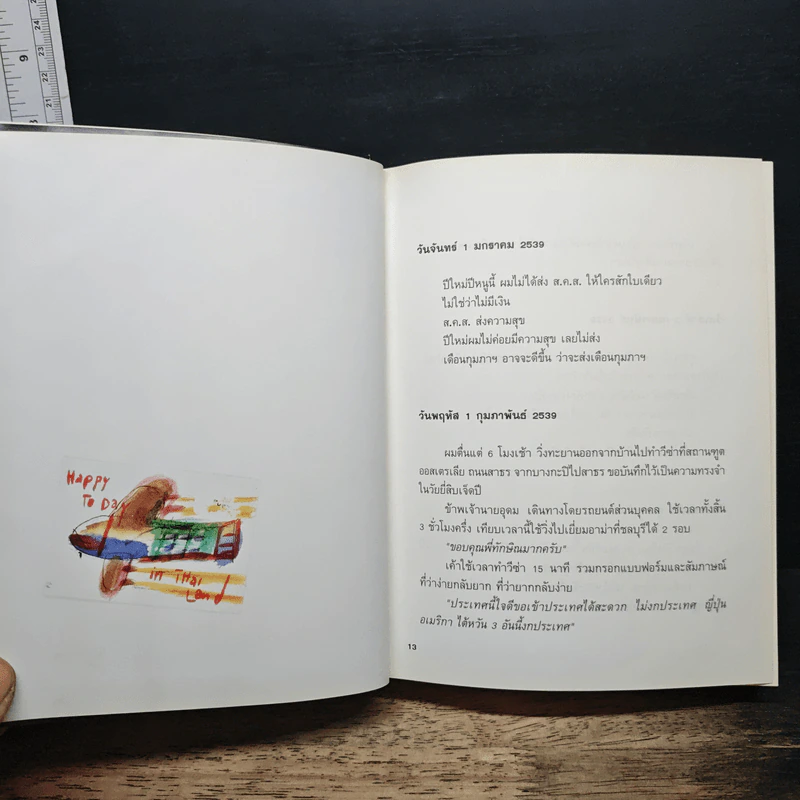 Happy
To Day
in THai
Land
วันจันทร์ 1 มกราคม 2539
ปีใหม่ปีหนูนี้ ผมไม่ได้ส่ง ส.ค.ส. ให้ใครสักใบเดียว
ไม่ใช่ว่าไม่มีเงิน
ส.ค.ส. ส่งความสุข
ปีใหม่ผมไม่ค่อยมีความสุข เลยไม่ส่ง
เดือนกุมภาฯ อาจจะดีขึ้น ว่าจะส่งเดือนกุมภาฯ
วันพฤหัส 1 กุมภาพันธ์ 2539
ผมตื่นแต่ 6 โมงเช้า วิ่งทะยานออกจากบ้านไปทำวีซ่าที่สถานฑูต
ออสเตรเลีย ถนนสาธร จากบางกะปิไปสาธร ขอบันทึกไว้เป็นความทรงจำ
ในวัยยี่สิบเจ็ดปี
ข้าพเจ้านายอุดม เดินทางโดยรถยนต์ส่วนบุคคล ใช้เวลาทั้งสิ้น
3 ชั่วโมงครึ่ง เทียบเวลานี้ใช้วิ่งไปเยี่ยมอาม่าที่ชลบุรีได้ 2 รอบ
"ขอบคุณพี่ทักษิณมากครับ"
เค้าใช้เวลาทำวีซ่า 15 นาที รวมกรอกแบบฟอร์มและสัมภาษณ์
ที่ว่าง่ายกลับยาก ที่ว่ายากกลับง่าย
"ประเทศนี้ใจดีขอเข้าประเทศได้สะดวก ไม่งกประเทศ ญี่ปุ่น
อเมริกา ไต้หวัน 3 อันนี้งกประเทศ"
13